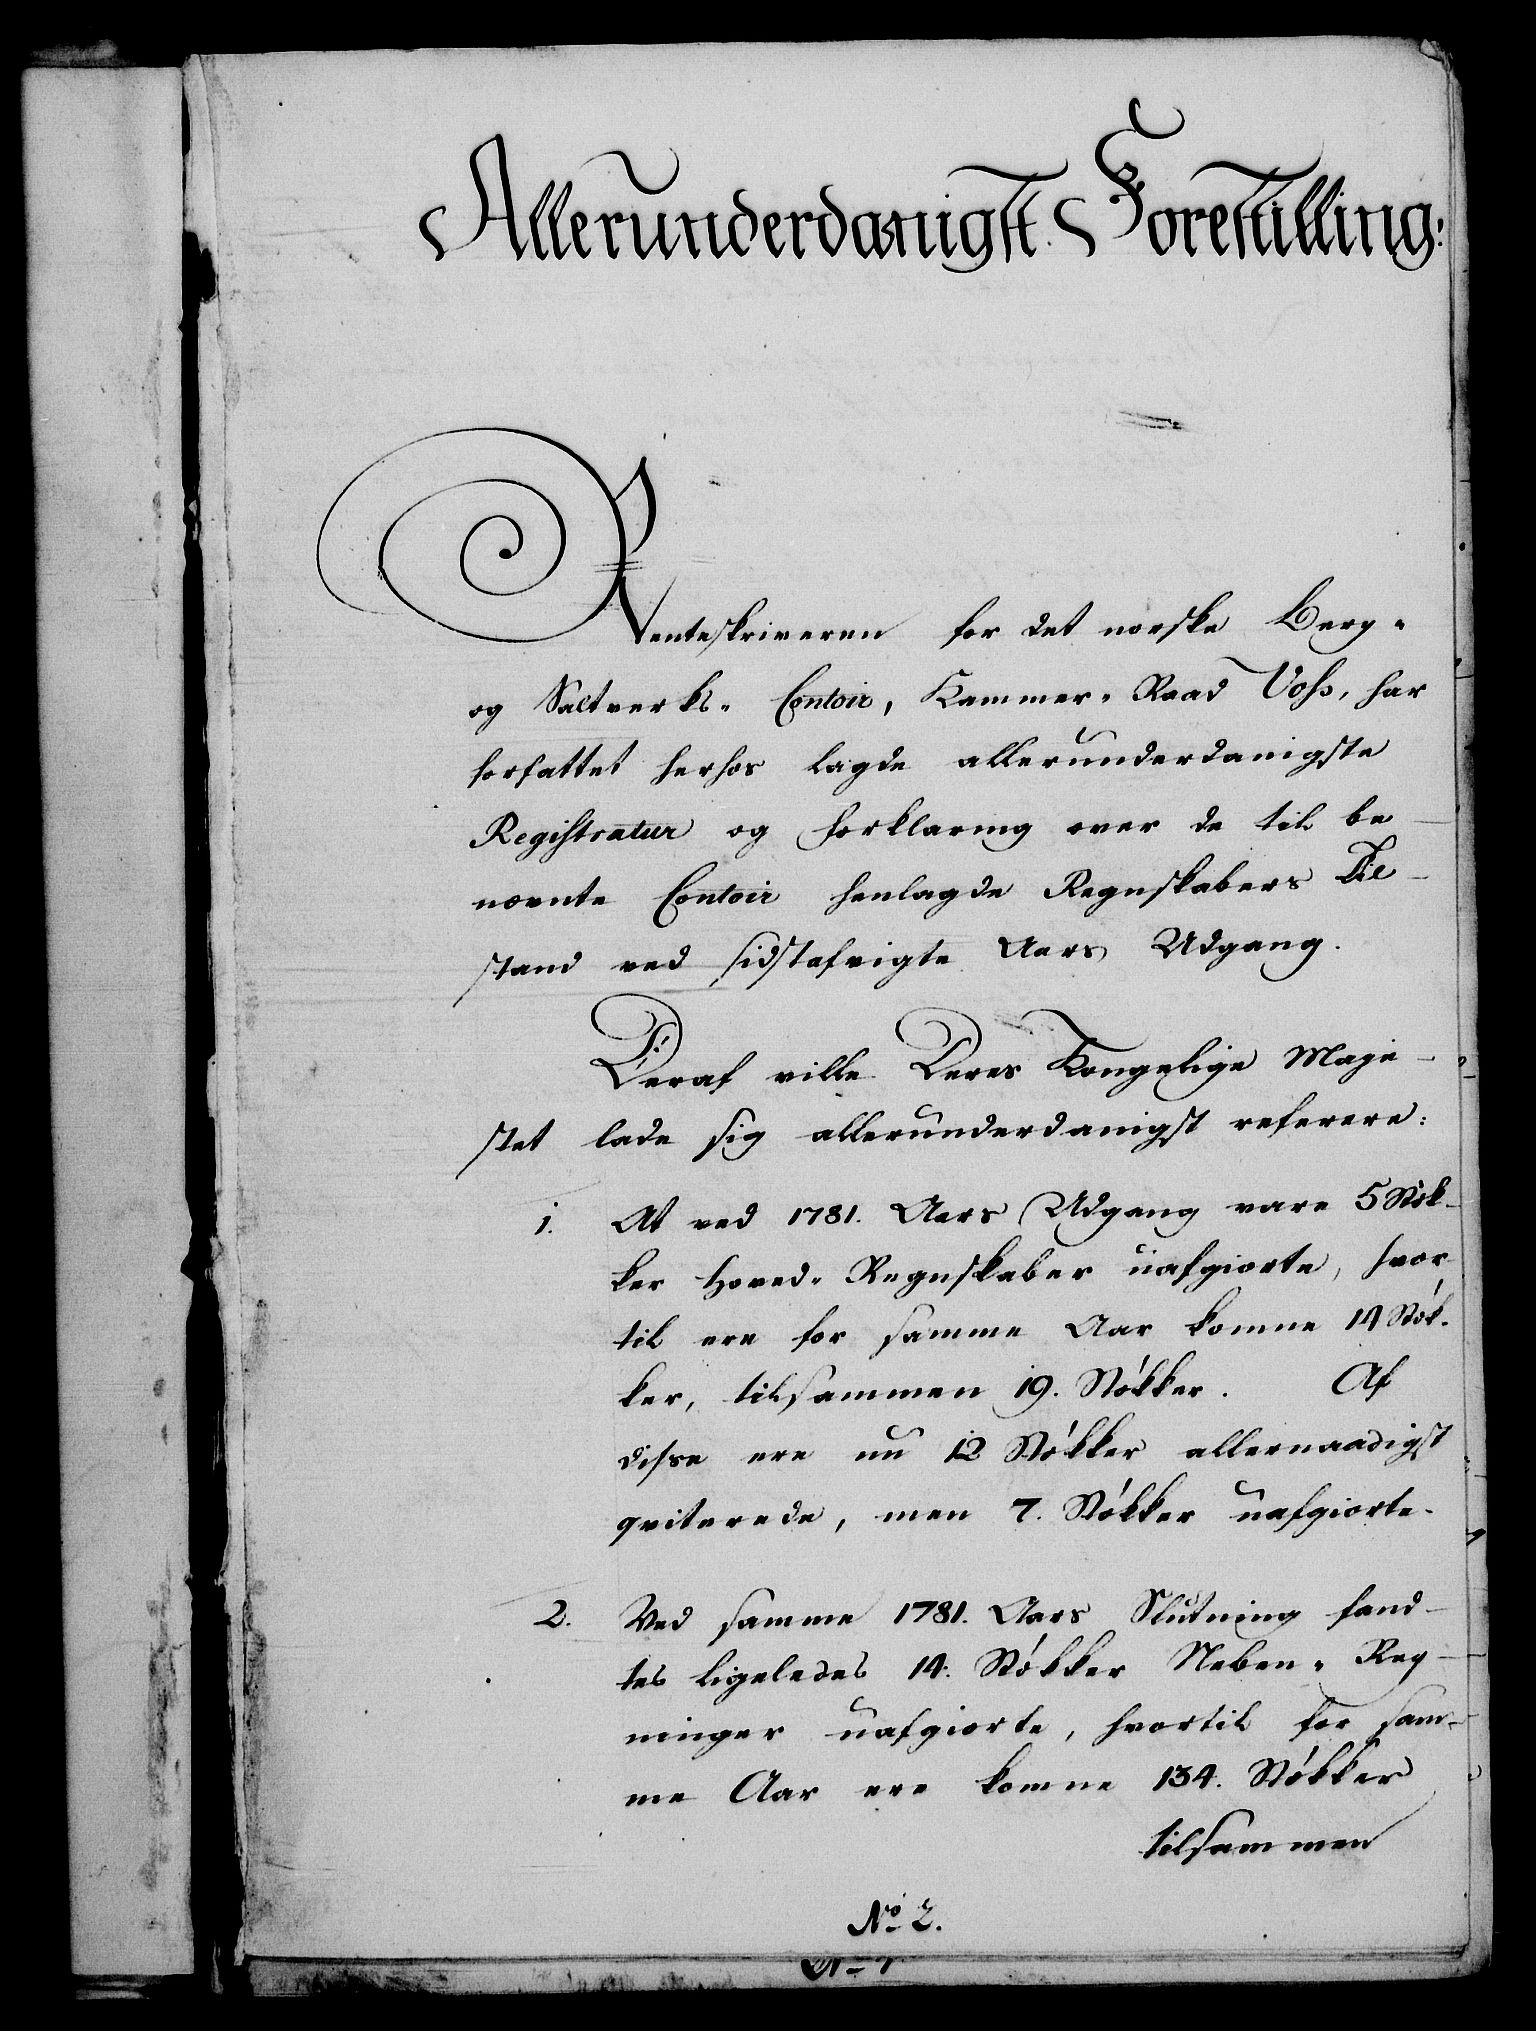 Allerunderdanigst Forestilling:
Renteskriveren for det norske Berg-
og Saltverks- Contoir, Kammer-Raad Voss, har
forfattet herhos lagde allerunderdanigste
Registratur og Forklaring over de til be-
nævnte Contoir henlagde Regnskabers Til-
stand ved sidstafvigte Aars Udgang.
Deraf ville Deres Kongelige Maje-
stet lade sig allerunderdanigst referere:
1. At ved 1781. Aars Udgang vare 5 Støk-
ker Hoved-Regnskaber uafgiorte, hvor
til ere for samme Aar komne 14 Støk-
ker, tilsammen 19. Støkker. Af
disse ere nu 12 Støkker allernaadigst
qviterede, men 7. Støkker uafgiorte.
2. Ved samme 1781. Aars Slutning fand-
tes ligeledes 14. Støkker Neben-Reg-
ninger uafgiorte, hvortil for sam-
me Aar ere komne 134. Støkker
tilsammen
No 2.